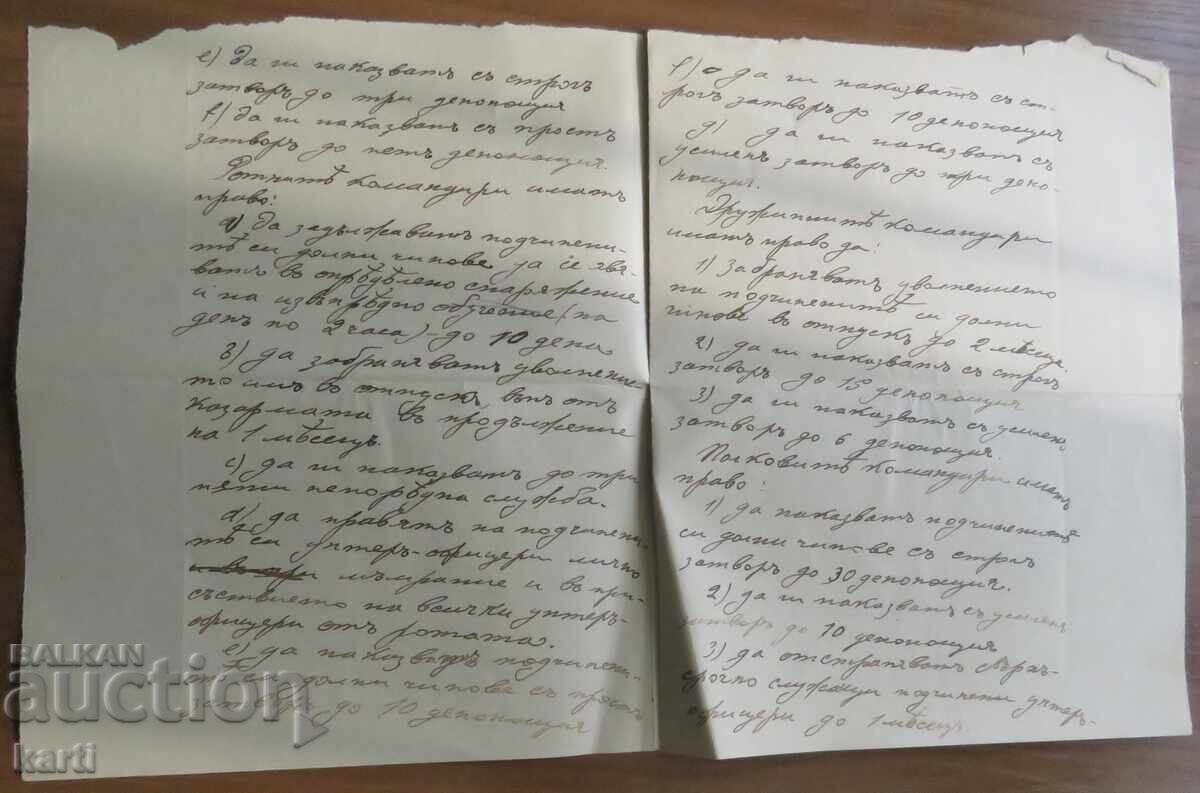 е) Да ги наказватъ съ строгъ
затворъ до три денонощия
f) да ги наказватъ съ простъ
затворъ до петь денонощия.
Ротнитѣ командири иматъ
право:
а) Да задължаватъ подчинени-
тѣ си долни чинове да се явя-
ватъ въ опрѣдѣлено снаряжение
и на извънрѣдно обучение (на
день по 2 часа) - до 10 дена
в) да забраняватъ уволнение
то имъ въ отпускъ, вънъ отъ
казармата въ продължение
на 1 мѣсецъ.
с) да ги наказватъ до три
пѫти непорѣдна служба.
d) да правятъ на подчинени-
тѣ си унтеръ-офицери лично
мъмрание и въ при-
съствието на всички унтеръ-
офицери отъ ротата.
е) да наказватъ подчинени-
тѣ си долни чинове съ простъ
затворъ до 10 денонощия
f) да ги наказватъ съ ст-
рогъ затворъ до 10 денонощия
g) да ги наказватъ съ
усиленъ затворъ до три дено-
нощия.
Дружиннитѣ командири
иматъ право да:
1) Забраняватъ уволнението
на подчиненитѣ си долни
чинове въ отпускъ до 2 мѣсеца.
2) да ги наказватъ съ строгъ
затворъ до 15 денонощия
3) да ги наказватъ съ усиленъ
затворъ до 6 денонощия.
Полковитѣ командири иматъ
право:
1) да наказватъ подчиненитѣ
си долни чинове съ строгъ
затворъ до 30 денонощия.
2) да ги наказватъ съ усиленъ
затворъ до 10 денонощия
3) да отстраняватъ свръх-
срочно служащи подчинени унтеръ-
офицери до 1 мѣсецъ.
BALKAN
auction
karti